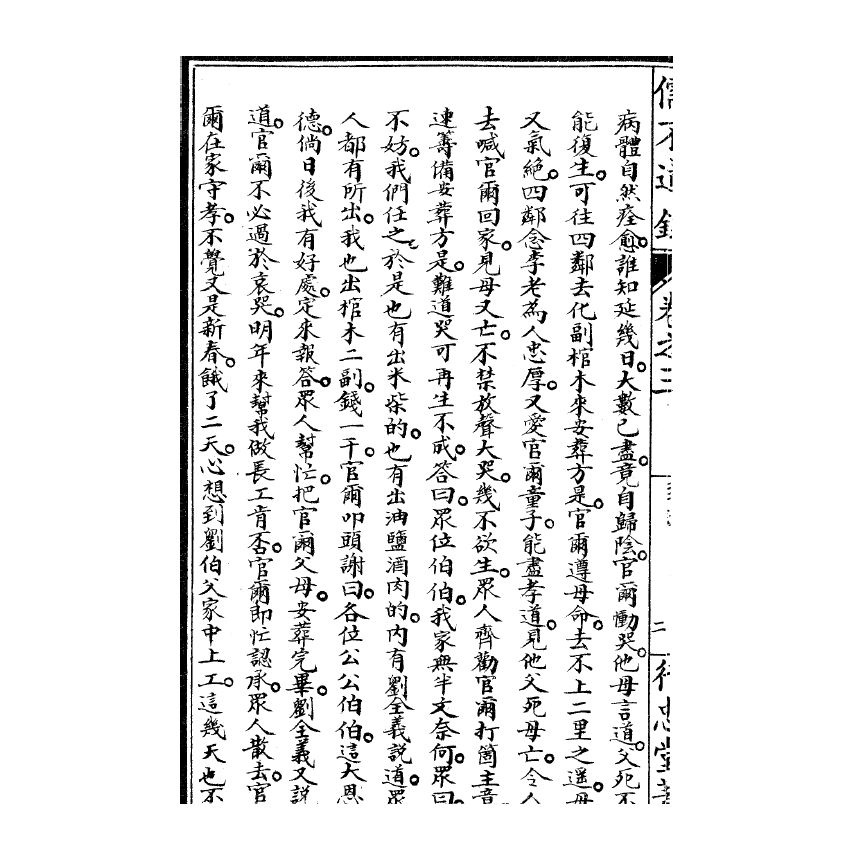 病體自然痊愈。誰知延幾日。大數已盡。竟自歸陰。官爾慟哭。他母言道。父死不
能復生。可往四鄰去化副棺木來安葬方是。官爾遵母命。去不上二里之遥。母
又氣絶。四鄰念李老為人忠厚。又愛官爾童子。能盡孝道。見他父死母亡。令人
去喊官爾回家。見母又亡。不禁放聲大哭。幾不欲生。眾人齊勸官爾打箇主意。
速籌備安葬方是。難道哭可再生不成。答曰。眾位伯伯。我家無半文奈何。眾曰。
不妨。我們任之。於是也有出米柴的。也有出油鹽酒肉的。內有劉全義說道。眾
人都有所出。我也出棺木二副。錢一千。官爾叩頭謝曰。各位公公伯伯。這大恩
德。倘日後我有好處。定來報答。眾人幫忙。把官爾父母安葬完畢。劉全義又説
道。官爾不必過於哀哭。明年來幫我做長工肯否。官爾即忙認承。眾人散去。官
爾在家守孝。不覺又是新春。餓了二天。心想到劉伯父家中上工。這幾天也不
卷之三
二